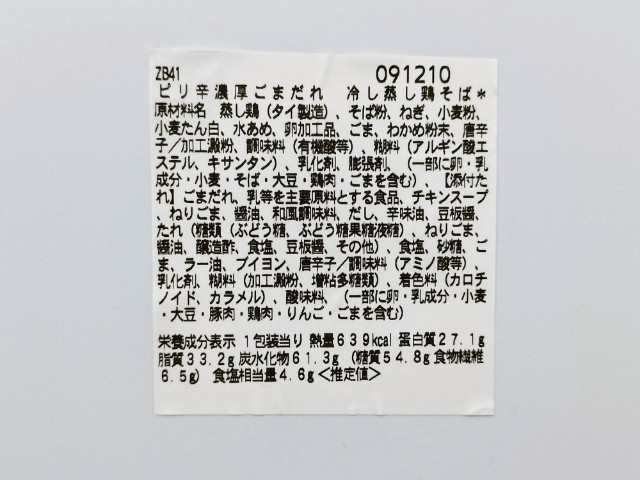 ZB41 091210
ピリ辛濃厚ごまだれ 冷し蒸し鶏そば*
原材料名 蒸し鶏(タイ製造)、そば粉、ねぎ、小麦粉、
小麦たん白、水あめ、卵加工品、ごま、わかめ粉末、唐辛
子/加工澱粉、調味料(有機酸等)、糊料(アルギン酸エ
ステル、キサンタン)、乳化剤、膨張剤、(一部に卵・乳
成分・小麦・そば・大豆・鶏肉・ごまを含む)、【添付た
れ】ごまだれ、乳等を主要原料とする食品、チキンスープ
、ねりごま、醤油、和風調味料、だし、辛味油、豆板醤、
たれ(糖類(ぶどう糖、ぶどう糖果糖液糖)、ねりごま、
醤油、醸造酢、食塩、豆板醤、その他)、食塩、砂糖、ご
ま、ラー油、ブイヨン、唐辛子/調味料(アミノ酸等)、
乳化剤、糊料(加工澱粉、増粘多糖類)、着色料(カロチ
ノイド、カラメル)、酸味料、(一部に卵・乳成分・小麦
・大豆・豚肉・鶏肉・りんご・ごまを含む)
栄養成分表示 1包装当り 熱量639kcal 蛋白質27.1g
脂質33.2g 炭水化物61.3g (糖質54.8g 食物繊維
6.5g) 食塩相当量4.6g<推定値>